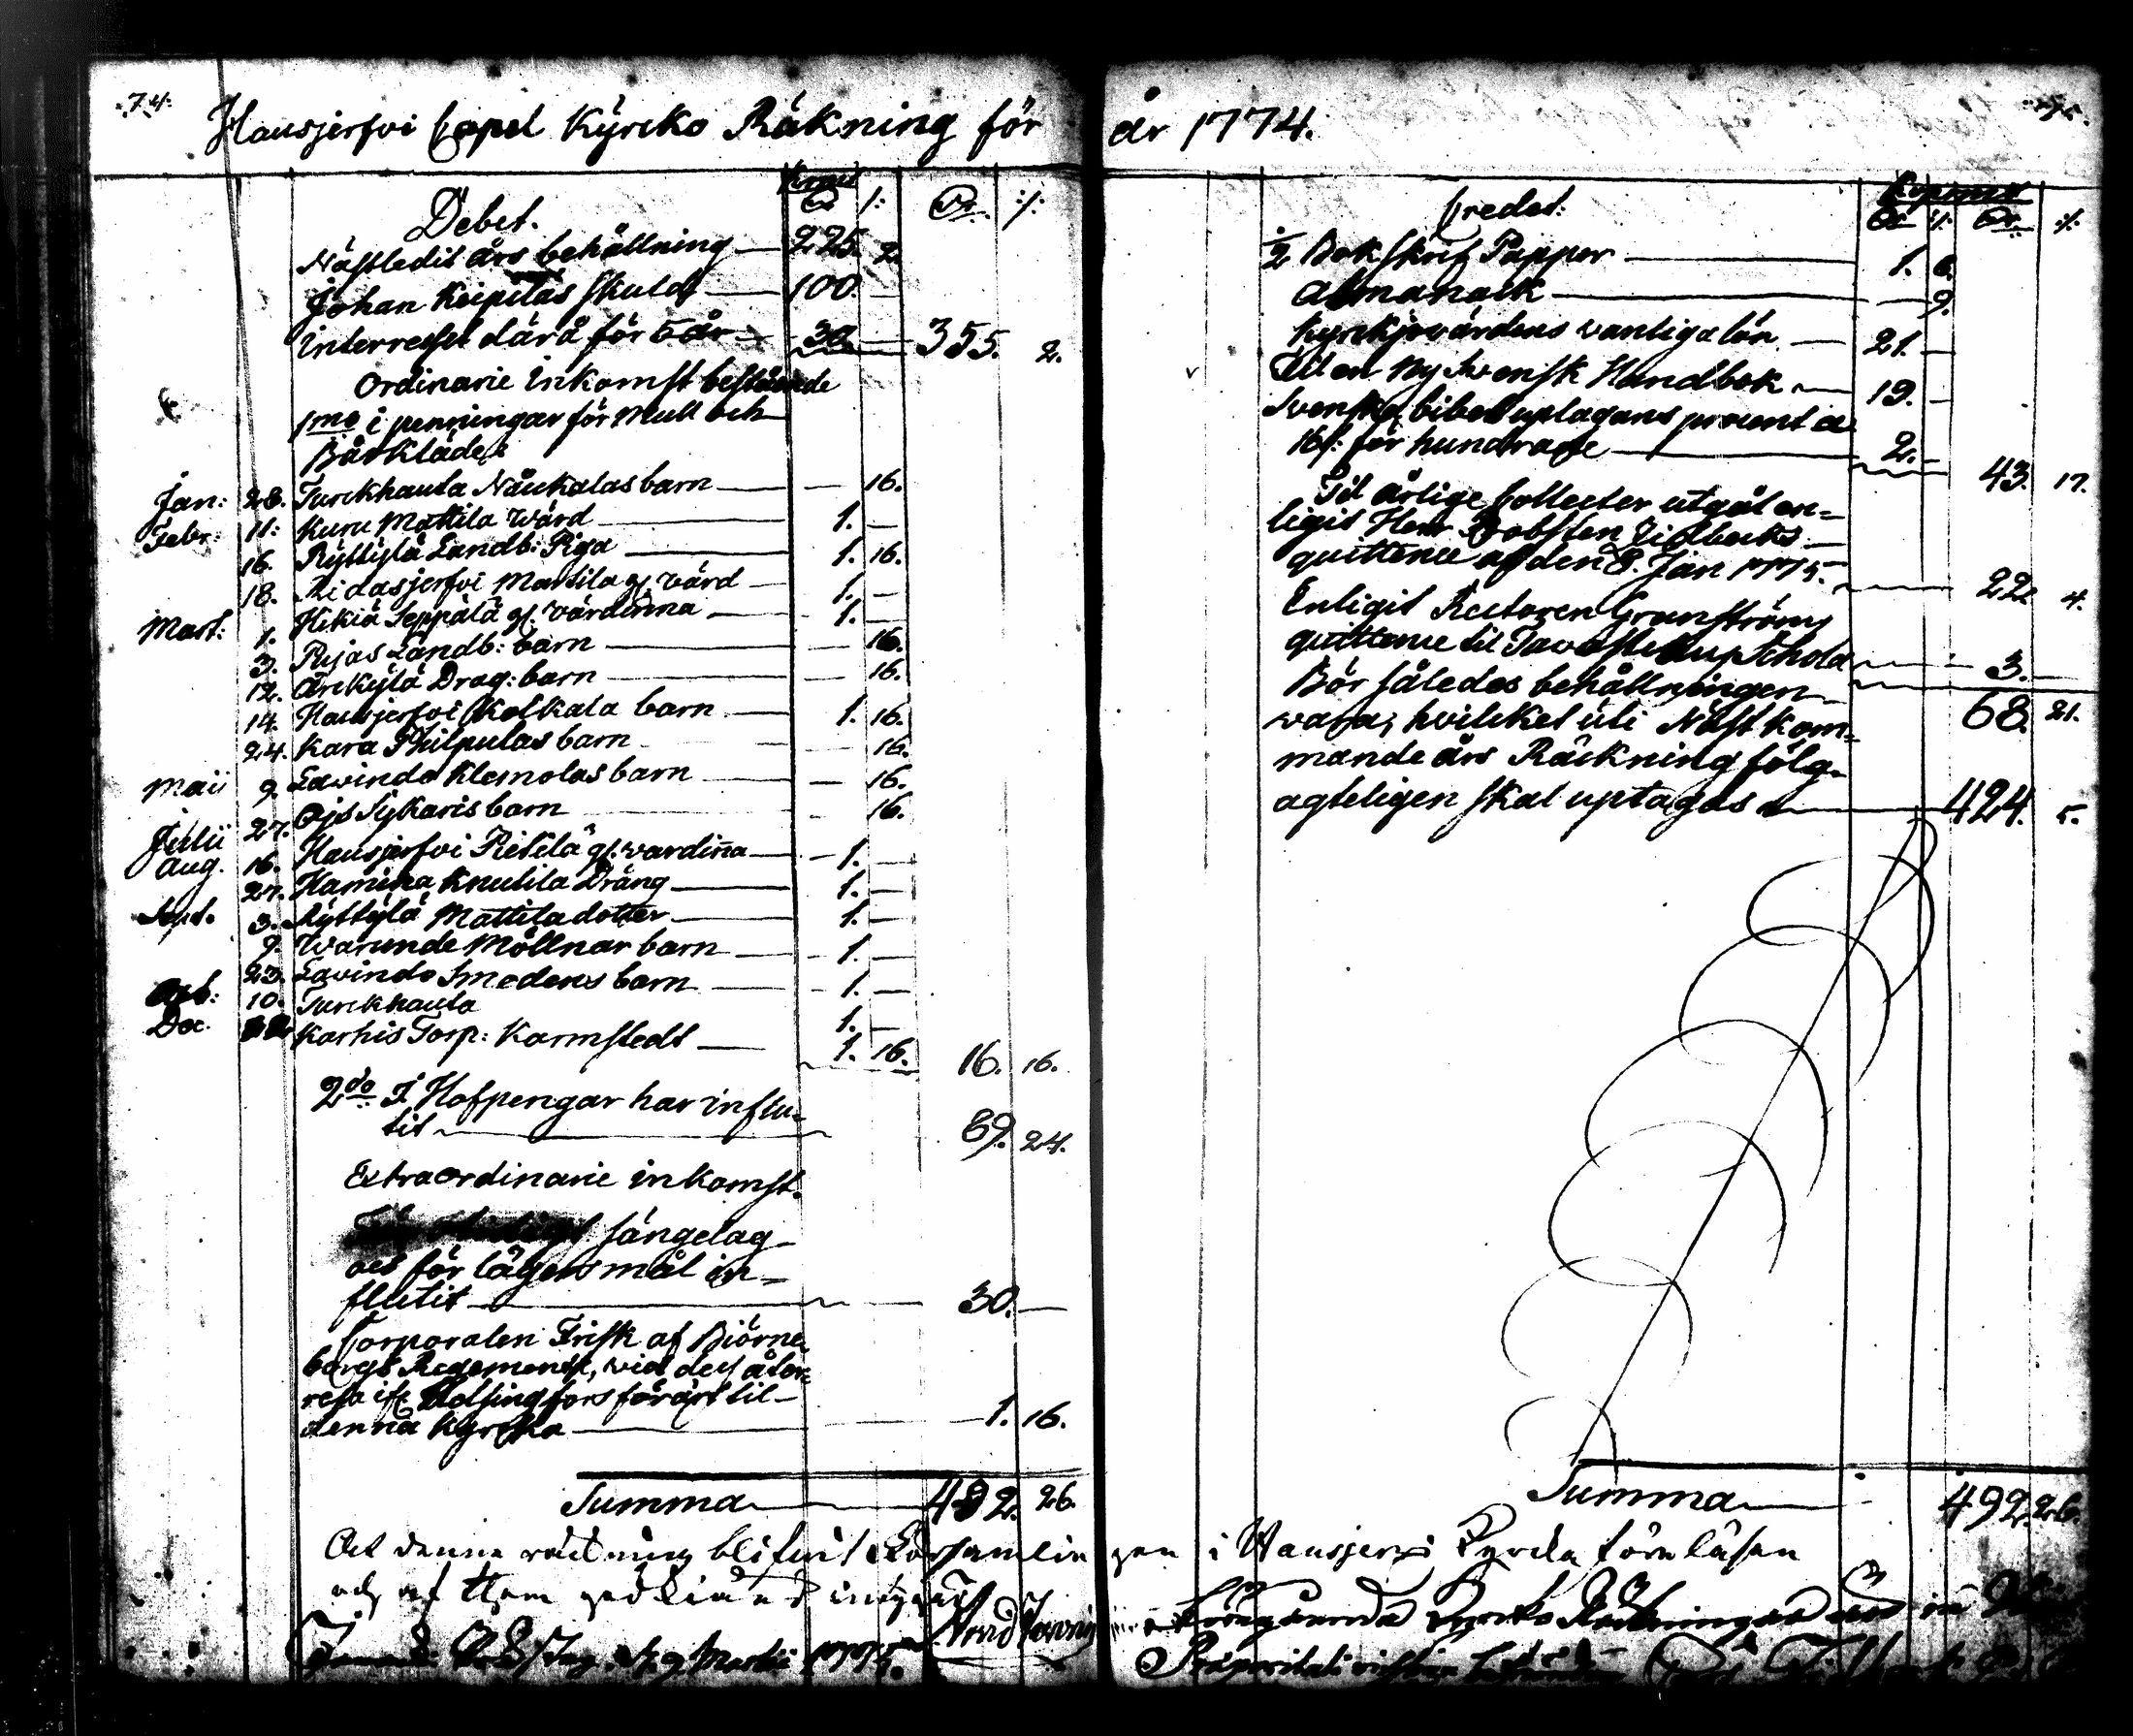 74:
Hausjerfvi Capel Kyrcko Räkning för år 1774.
Debet.
Näſtledit års behållning — 225. 2.
Johan Keipilas ſkuld — 100. —
Interreſſet därå för 5 år — 30. — 355. 2.
Ordinarie Inkomſt beſtående
1mo i penningar för Mull och
Bårkläde
Jan: 28. Turckhauta Nåukalas barn — 16.
Febr: 11: Kuru Mattila Wärd — 1. —
16. Ryttylä Landb: Piga — 1. 16.
18. Ridasjerfvi Mattila gl. Värd — 1. —
Mart: 1. Hikiä Seppälä gl. Värdinna — 1. —
3. Pujas Landb: barn — 16.
12. Erckylä Drag: barn — 16.
14. Hausjerfvi Kolkala barn — 1. 16.
24. Kara Philpulas barn — 16.
Maii 9. Lavinda Klemolas barn — 16.
Julii 27. Ojs Sykaris barn — 16.
Aug. 16. Hausjerfvi Pietilä gl. wardiña — 1. —
27. Hamina Knutila Dräng — 1. —
Sept. 3. Ryttylä Mattila dotter — 1. —
9. Warunde Möllnar barn — 1. —
23. Lavinda Smedens barn — 1. —
Oct: 10. Turckhauta 1. —
Dec. Karhis Torp: Karmſtedt — 1. 16. 16. 16.
2do: I Hofpengar har influ=
tit — 89. 24.
Extraordinarie inkomſt.
ſängelag
för lägersmål in=
flutit — 30. —
Corporalen Friſk af Biörne
borgs Regemente, vid deſſ åter
reſa Helſingfors förärt til
denna Kyrcka — 1. 16.
Summa — 492. 26.
Credet:
½ Bok ſkrif Papper — 1. 8.
Almanack — 9.
Kyrckjovärdens vanliga lön — 21. —
Til en Ny Svenſk Handbok — 19. —
Svenſka bibel uplagans procent a
16/: för hundrade — 2. — 43. 17.
Til årlige Collecter utgåt en=
ligit Herr Probſten Zidbecks
quittence af den 8. Jan 1775. — 22. 4.
Enligit Rectoren Granſtröms
quittence til Tavaſtehus Schola — 3. —
Bör således behållningen 68. 21.
wara, hvilcket uti Näſt kom=
mande års Räckning fölg=
agteligen ſkal uptagas — 424. 5.
Summa — 492. 26.
At denna räckning blifvit Församlingen i Hausjerfvi Kyrcka föreläſen
och af them
Martii 1775. Arvid